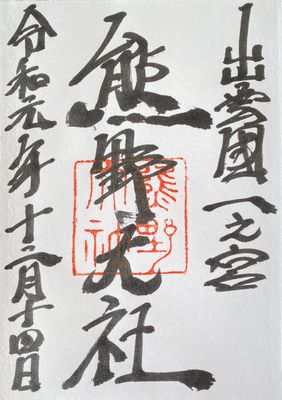 出雲國一之宮
熊野大社
令和元年十二月十四日
熊野大社